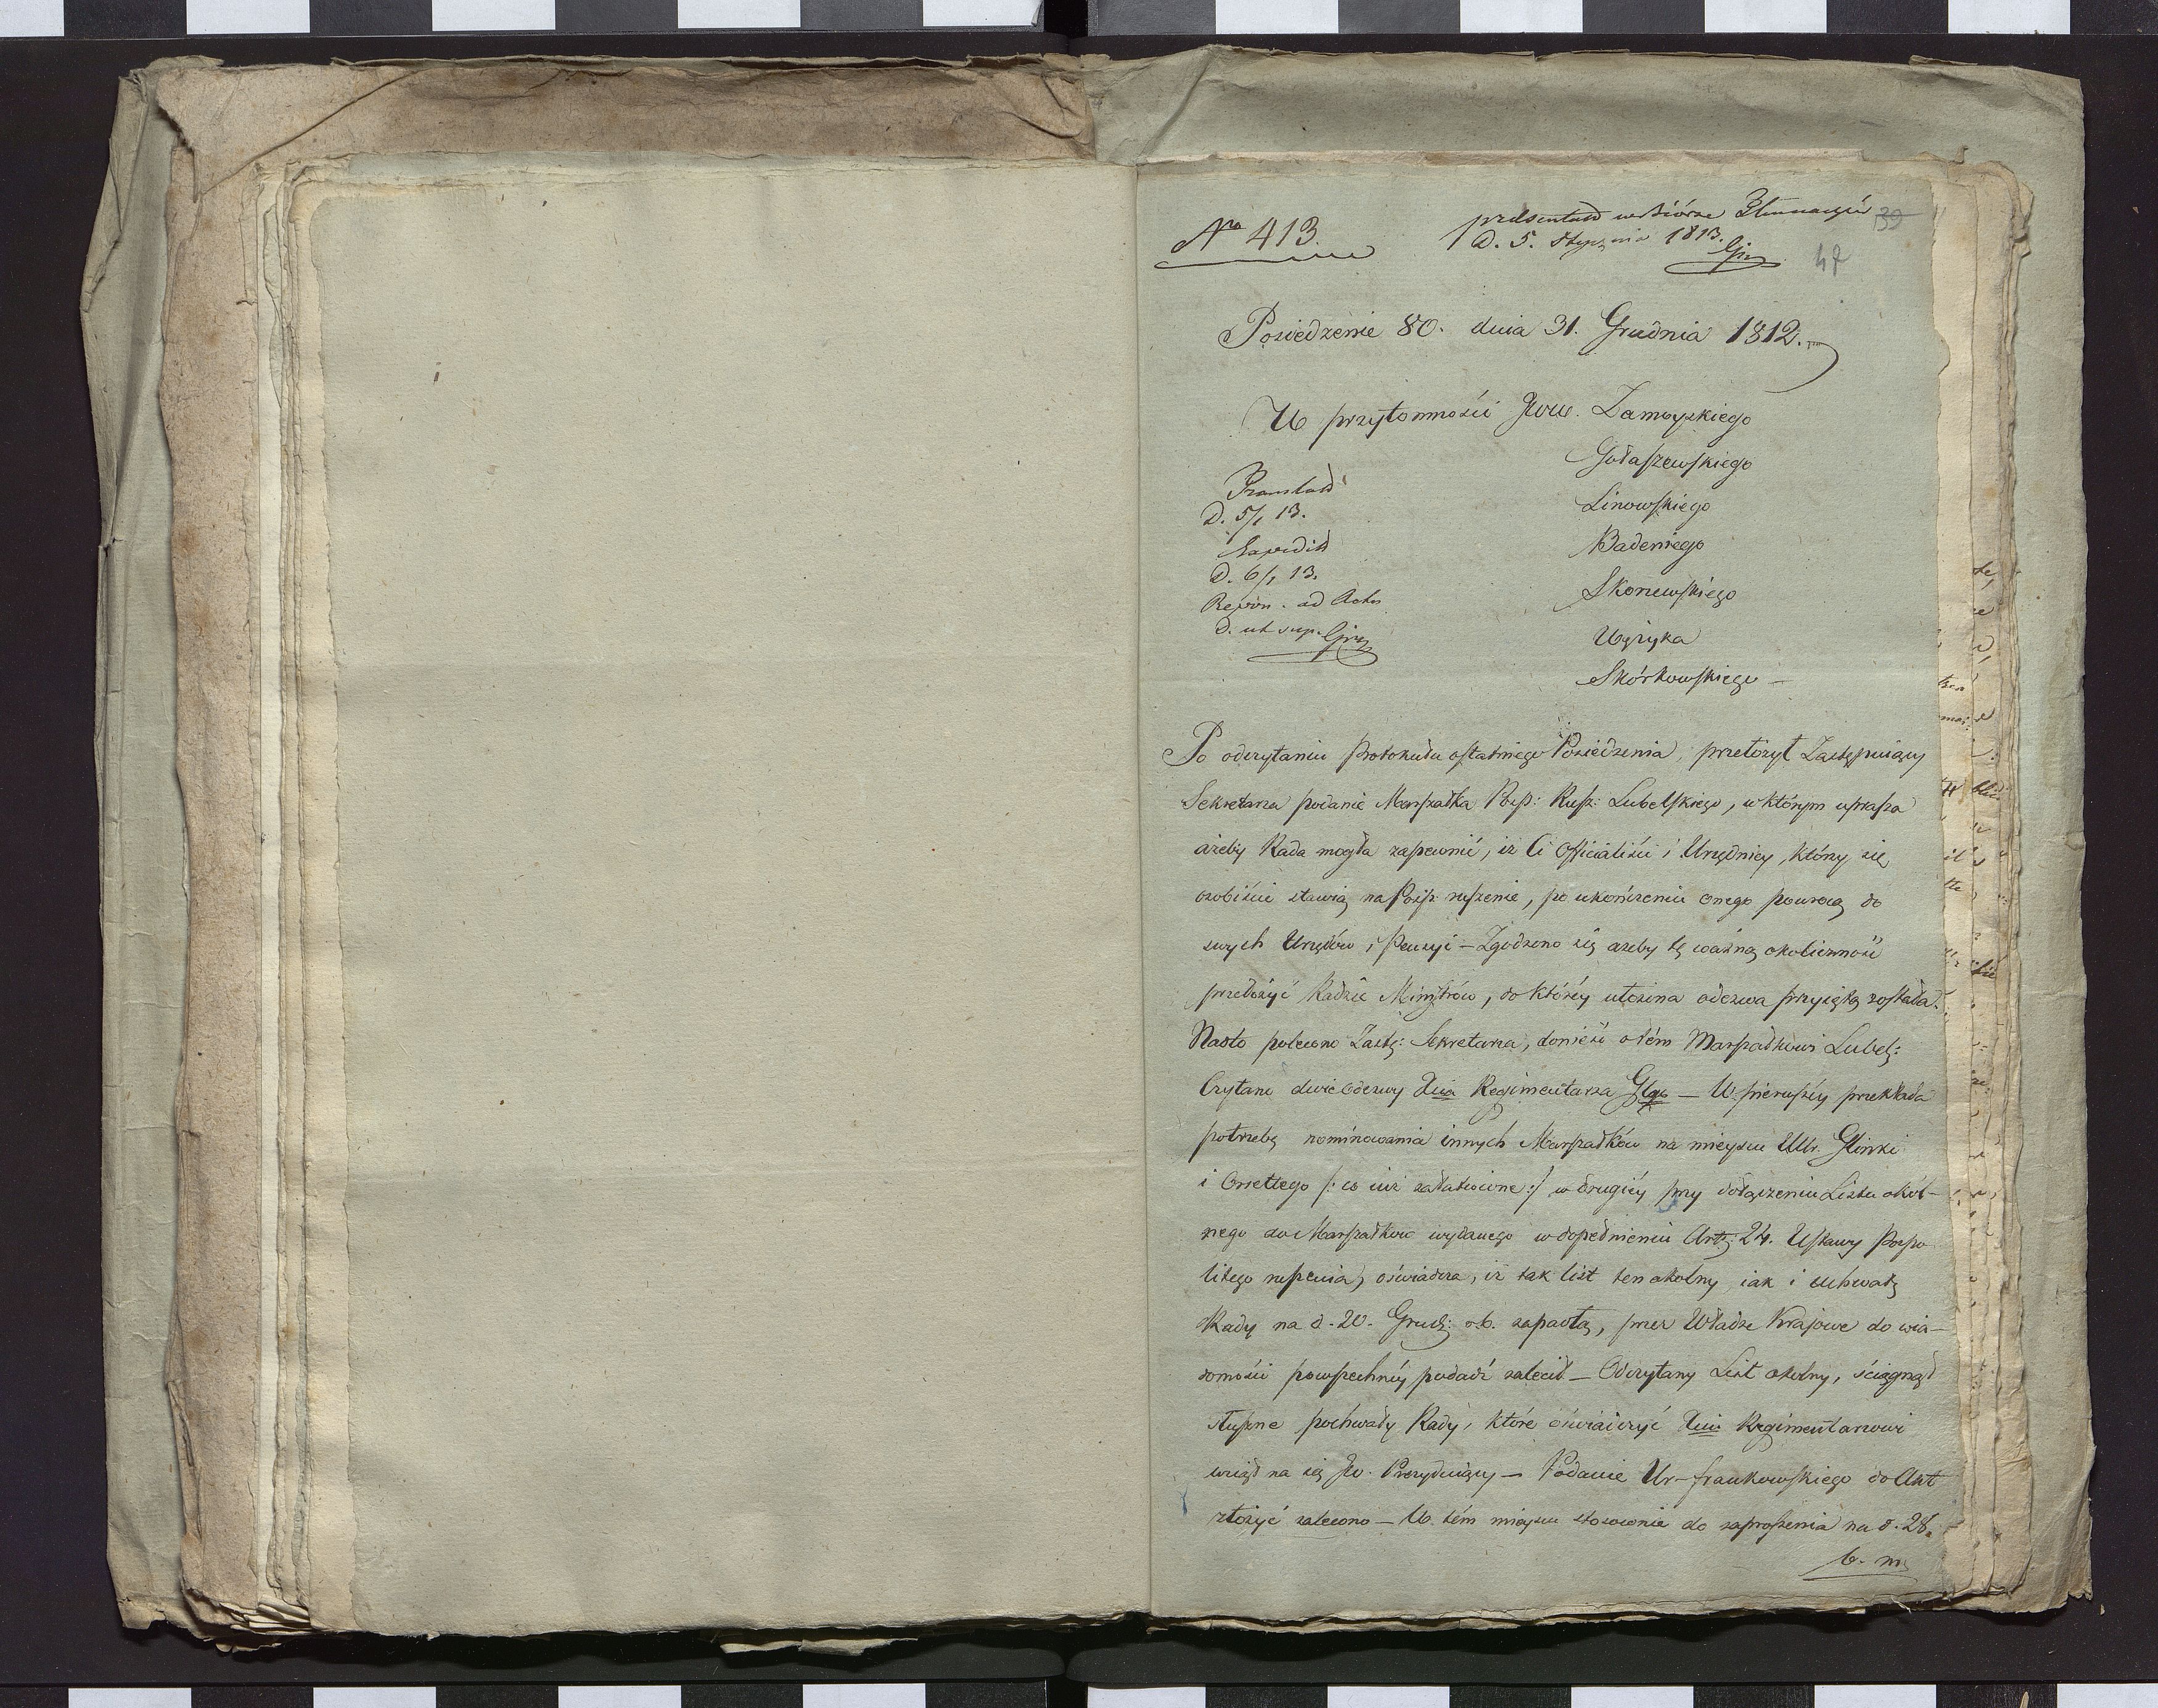 No 413.
presentat. w Biórze Tłumaczów 39
D. 5. Stycznia 1813.
47
Posiedzenie 80. dnia 31. Grudnia 1812.
W przytomności JWW. Zamoyskiego
Gołaszewskiego
Linowskiego
Badeniego
Skorzewskiego
Wężyka
Skórkowskiego —
Translat
D. 5/1 13.
Expedit
D. 6/1 13.
Repon. ad Acta
D. ut sup.
Po odczytaniu Protokułu ostatniego Posiedzenia, przełożył Zastępuiący
Sekretarza podanie Marszałka Posp: Rusz: Lubelskiego, w którym uprasza
ażeby Rada mogła zapewnić, iż Ci Officialiści i Urzędnicy, którzy się
osobiście stawią na Posp. ruszenie, po ukończeniu onego powrócą do
swych Urzędów i Pensyi — Zgodzono się ażeby tę ważną okoliczność
przełożyć Radzie Ministrów, do któréy ułożona odezwa przyiętą została.
Nadto polecono Zastę: Sekretarza, donieść o tém Marszałkowi Lubel:
Czytano dwie Odezwy Xcia Regimentarza Glgo — W pierwszéy przekłada
potrzebę nominowania innych Marszałków na mieyscu UUr. Glinki
i Orsettego /: co iuż załatwione :/ w drugiéy przy dołączeniu Listu okól-
nego do Marszałków wydanego w dopełnieniu Art: 24. Ustawy Pospo-
litego ruszenia, oświadcza, iż tak list ten okolny, iak i uchwałę
Rady na d. 20. Grud: r.b. zapadłą, przez Władze Krajowe do wia-
domości powszechnéy podadź zalecił — Odczytany List okolny, ściągnął
słuszne pochwały Rady, które oświadczyć Xciu Regimentarzowi
wziął na się JW. Prezyduiący — Podanie Ur. Frankowskiego do Akt
złożyć zalecono — W tém mieyscu stosownie do zaproszenia na d. 28.
b. m.